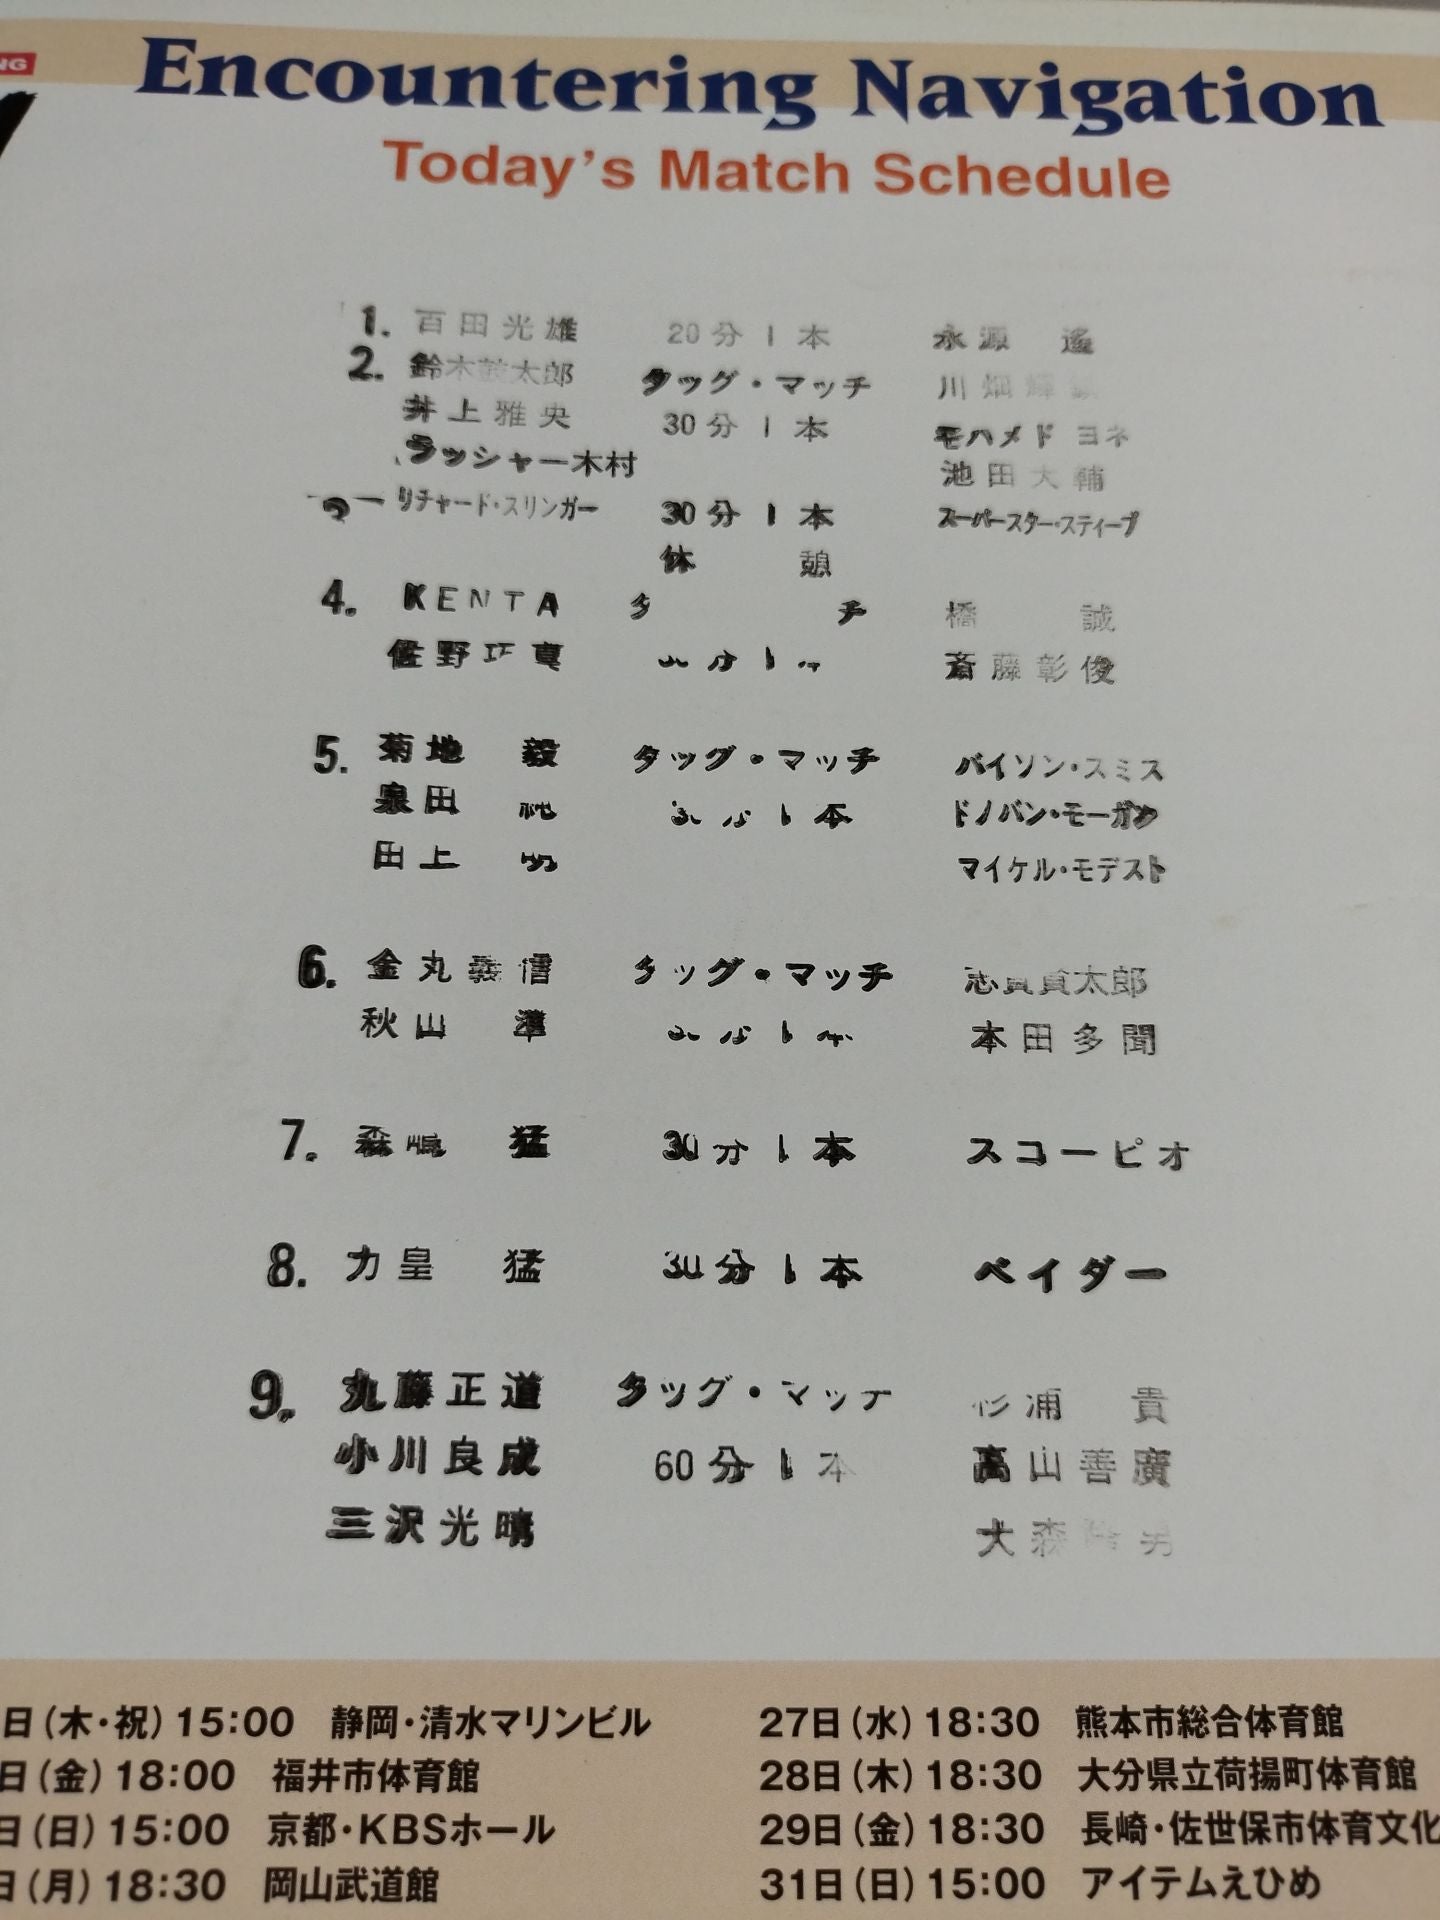 NG
Encountering Navigation
Today's Match Schedule
1. 百田光雄 20分1本 永源 遙
2. 鈴木鼓太郎 タッグ・マッチ 川畑輝鎮
井上雅央 30分1本 モハメド ヨネ
ラッシャー木村 池田大輔
3. リチャード・スリンガー 30分1本 スーパースター・スティーブ
休 憩
4. KENTA タ チ 橋 誠
佐野巧真 30分1本 斎藤彰俊
5. 菊地 毅 タッグ・マッチ バイソン・スミス
泉田 純 30分1本 ドノバン・モーガン
田上 明 マイケル・モデスト
6. 金丸義信 タッグ・マッチ 志賀賢太郎
秋山 準 30分1本 本田多聞
7. 森嶋 猛 30分1本 スコーピオ
8. 力皇 猛 30分1本 ベイダー
9. 丸藤正道 タッグ・マッチ 杉浦 貴
小川良成 60分1本 高山善廣
三沢光晴 大森隆男
日(木・祝)15:00 静岡・清水マリンビル
日(金)18:00 福井市体育館
日(日)15:00 京都・KBSホール
日(月)18:30 岡山武道館
27日(水)18:30 熊本市総合体育館
28日(木)18:30 大分県立荷揚町体育館
29日(金)18:30 長崎・佐世保市体育文化
31日(日)15:00 アイテムえひめ